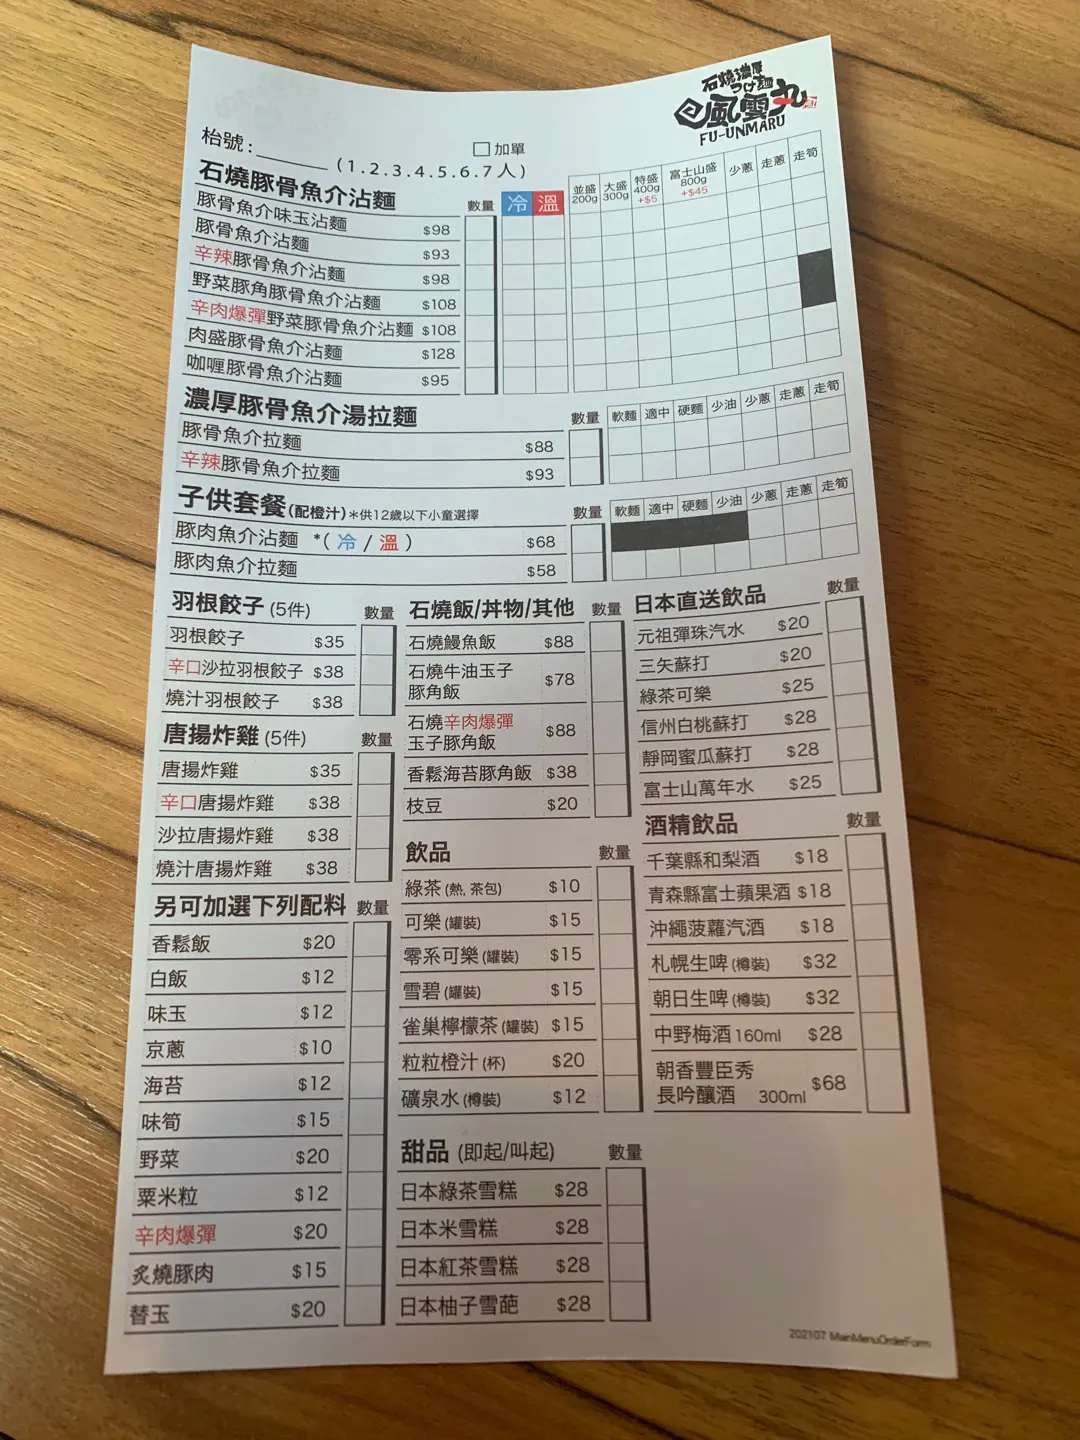 石燒濃厚
つけ麺
風雲丸
FU-UNMARU
枱號:________ □加單
(1.2.3.4.5.6.7人)
石燒豚骨魚介沾麵 數量 冷 溫 並盛200g 大盛300g 特盛400g+$5 富士山盛800g+$45 少蔥 走蔥 走筍
豚骨魚介味玉沾麵 $98
豚骨魚介沾麵 $93
辛辣豚骨魚介沾麵 $98
野菜豚角豚骨魚介沾麵 $108
辛肉爆彈野菜豚骨魚介沾麵 $108
肉盛豚骨魚介沾麵 $128
咖喱豚骨魚介沾麵 $95
濃厚豚骨魚介湯拉麵 數量 軟麵 適中 硬麵 少油 少蔥 走蔥 走筍
豚骨魚介拉麵 $88
辛辣豚骨魚介拉麵 $93
子供套餐(配橙汁)*供12歲以下小童選擇 數量 軟麵 適中 硬麵 少油 少蔥 走蔥 走筍
豚肉魚介沾麵 *(冷/溫) $68
豚肉魚介拉麵 $58
羽根餃子 (5件) 數量
羽根餃子 $35
辛口沙拉羽根餃子 $38
燒汁羽根餃子 $38
唐揚炸雞 (5件) 數量
唐揚炸雞 $35
辛口唐揚炸雞 $38
沙拉唐揚炸雞 $38
燒汁唐揚炸雞 $38
另可加選下列配料 數量
香鬆飯 $20
白飯 $12
味玉 $12
京蔥 $10
海苔 $12
味筍 $15
野菜 $20
粟米粒 $12
辛肉爆彈 $20
炙燒豚肉 $15
替玉 $20
石燒飯/丼物/其他 數量
石燒鰻魚飯 $88
石燒牛油玉子
豚角飯 $78
石燒辛肉爆彈
玉子豚角飯 $88
香鬆海苔豚角飯 $38
枝豆 $20
飲品 數量
綠茶(熱, 茶包) $10
可樂(罐裝) $15
零系可樂(罐裝) $15
雪碧(罐裝) $15
雀巢檸檬茶(罐裝) $15
粒粒橙汁(杯) $20
礦泉水(樽裝) $12
甜品 (即起/叫起) 數量
日本綠茶雪糕 $28
日本米雪糕 $28
日本紅茶雪糕 $28
日本柚子雪葩 $28
日本直送飲品 數量
元祖彈珠汽水 $20
三矢蘇打 $20
綠茶可樂 $25
信州白桃蘇打 $28
靜岡蜜瓜蘇打 $28
富士山萬年水 $25
酒精飲品 數量
千葉縣和梨酒 $18
青森縣富士蘋果酒 $18
沖繩菠蘿汽酒 $18
札幌生啤(樽裝) $32
朝日生啤(樽裝) $32
中野梅酒160ml $28
朝香豐臣秀
長吟釀酒 300ml $68
202107 MainMenuOrderForm